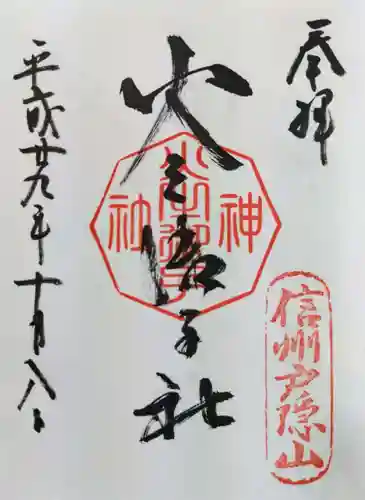 奉拝
信州戸隠山
火之御子社
神社
火之御子
平成廿九年十月八日